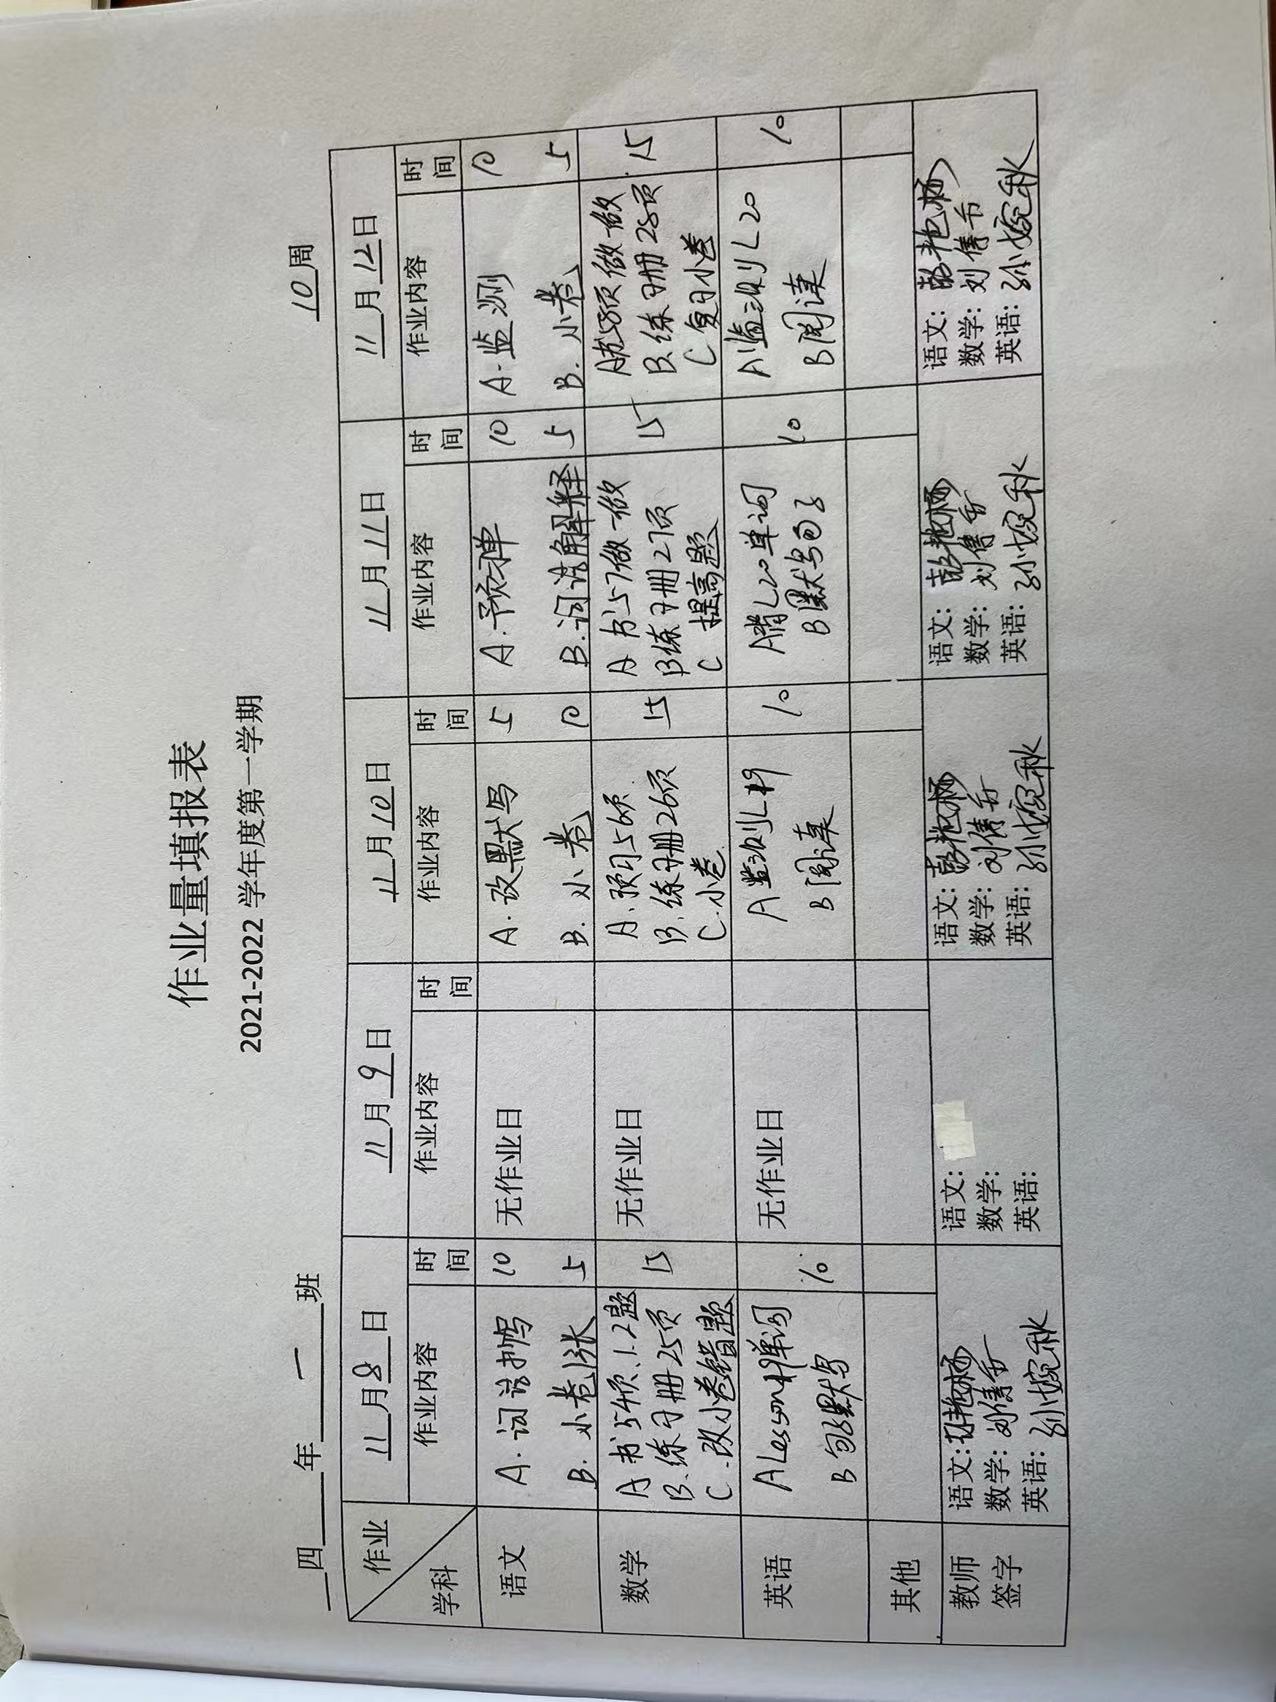 作业量填报表
2021-2022 学年度第一学期
四 年 一 班 10 周
作业 11月8日 11月9日 11月10日 11月11日 11月12日
学科 作业内容 时间 作业内容 时间 作业内容 时间 作业内容 时间 作业内容 时间
语文 A.词语抄写 10 无作业日 A.改默写 5 A.预习单 10 A.监测 10
B.小卷1张 5 B.小卷 10 B.词语解释 5 B.小卷 5
数学 A 书54页1.2题 15 无作业日 A.预习56页 15 A 书57做一做 15 A书58页做一做 15
B.练习册25页 B.练习册26页 B练习册27页 B.练习册28页
C.改小卷错题 C.小卷 C 提高题 C复习小卷
英语 A Lesson19单词 10 无作业日 A监测L19 10 A背L20单词 10 A监测L20 10
B 句子默写 B阅读 B默写句子 B阅读
其他
教师 语文: 语文: 语文:彭艳杨 语文:彭艳杨 语文:彭艳杨
签字 数学:刘倩 数学: 数学:刘倩 数学:刘倩 数学:刘倩
英语:孙婉秋 英语: 英语:孙婉秋 英语:孙婉秋 英语:孙婉秋